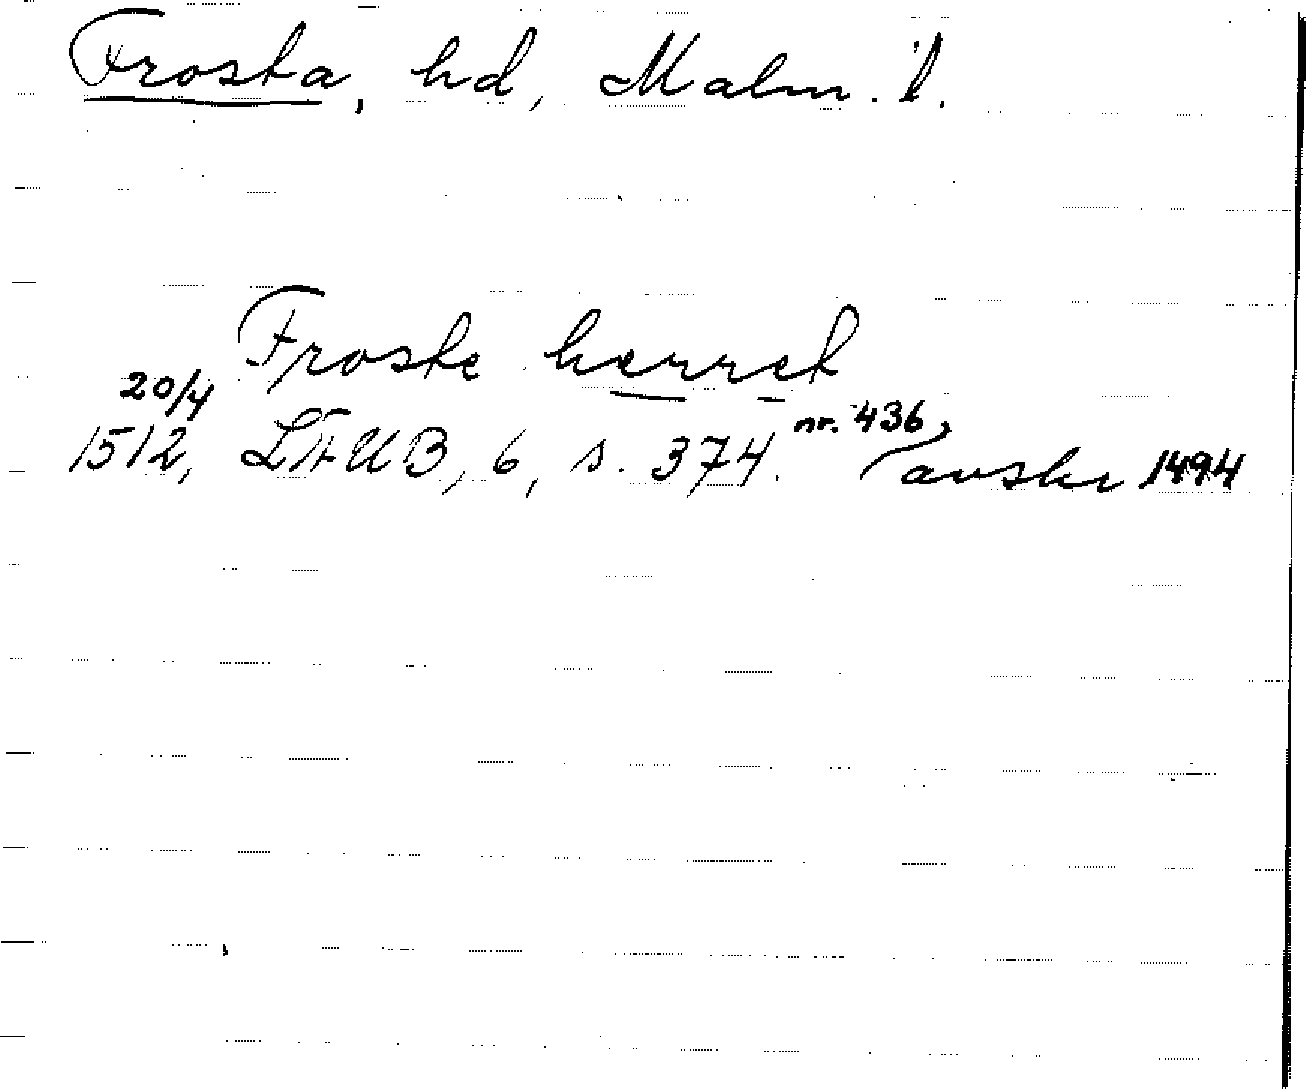 Frosta, hd, Malm. l.
Froste herret
20/4
1512, LÄUB, 6, s. 374. nr. 436, avskr 1494